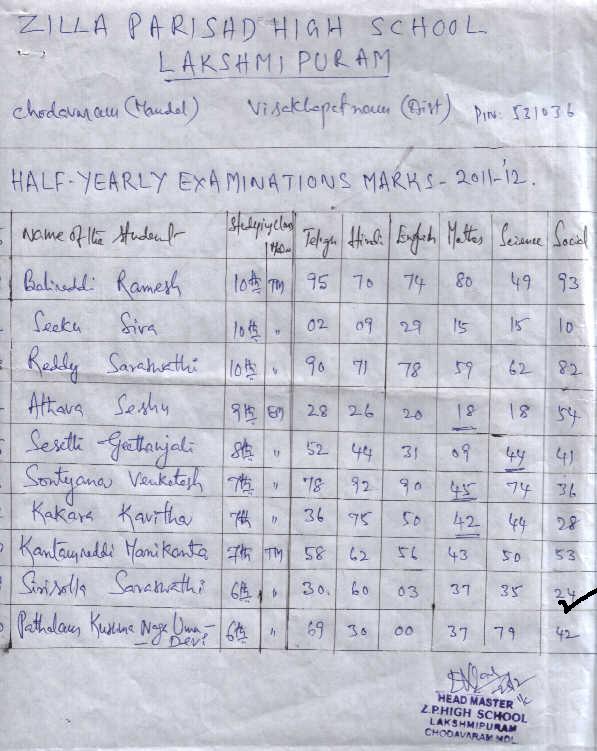 ZILLA PARISAD HIGH SCHOOL
LAKSHMIPURAM
Chodavaram (Mandal) Visakhapatnam (Dist) PIN: 531036
HALF-YEARLY EXAMINATIONS MARKS - 2011-'12.
Name of the Student Studying class Telugu Hindi English Maths Science Social
Balireddi Ramesh 10th TM 95 70 74 80 49 93
Seeku Siva 10th " 02 09 29 15 15 10
Reddy Saraswathi 10th " 90 71 78 59 62 82
Athava Seshu 9th EM 28 26 20 18 18 54
Sesetti Geethanjali 8th " 52 44 31 09 44 41
Sontyana Venkatesh 7th " 78 92 90 45 74 36
Kakara Kavitha 7th " 36 75 50 42 44 28
Kantamreddi Manikanta 7th TM 58 62 56 43 50 53
Sirisolla Saraswathi 6th " 30. 60 03 37 35 24
Kusuma Naga Uma- 6th " 69 30 00 37 79 42
Devi
HEAD MASTER
Z.P.HIGH SCHOOL
LAKSHMIPURAM
CHODAVARAM MDL.